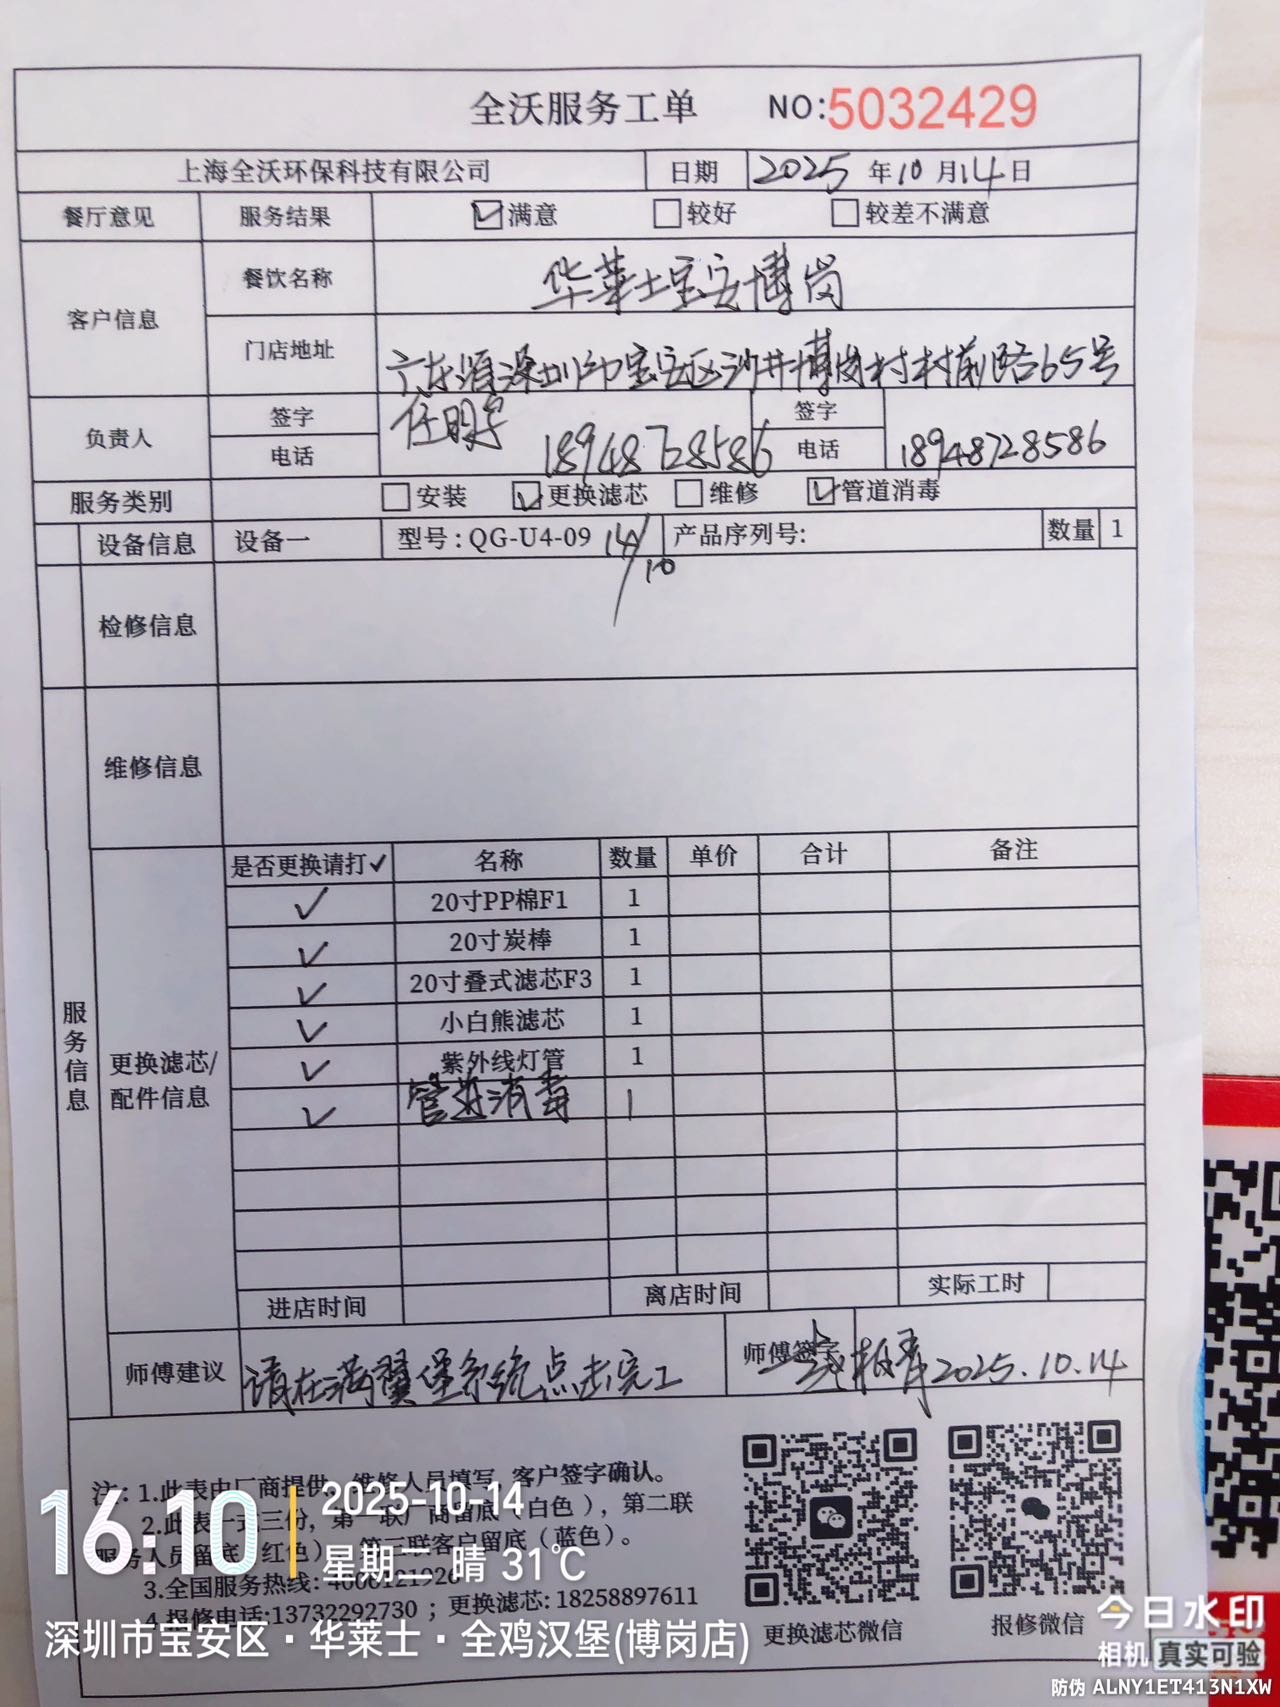 全沃服务工单 NO:5032429
上海全沃环保科技有限公司 日期 2025 年 10 月 14 日
餐厅意见 服务结果 ☑满意 □较好 □较差不满意
客户信息 餐饮名称 华莱士宝安博岗
门店地址 广东省深圳市宝安区沙井博岗村村前路65号
负责人 签字 任明宇 签字
电话 18948728586 电话 18948728586
服务类别 □安装 ☑更换滤芯 □维修 ☑管道消毒
设备信息 设备一 型号：QG-U4-09 14/10 产品序列号: 数量 1
检修信息
维修信息
服务信息
更换滤芯/
配件信息
是否更换请打✓ 名称 数量 单价 合计 备注
✓ 20寸PP棉F1 1
✓ 20寸炭棒 1
✓ 20寸叠式滤芯F3 1
✓ 小白熊滤芯 1
✓ 紫外线灯管 1
✓ 管道消毒 1
进店时间 离店时间 实际工时
师傅建议 请在满翼堡系统点击完工 师傅签字 2025.10.14
注：1.此表由厂商提供，维修人员填写，客户签字确认。
2.此表一式三份，第一联厂商留底（白色），第二联
服务人员留底（红色），第三联客户留底（蓝色）。
3.全国服务热线: 4000121920
4.报修电话:13732292730 ；更换滤芯: 18258897611
更换滤芯微信 报修微信
16:10 2025-10-14
星期二 晴 31℃
深圳市宝安区·华莱士·全鸡汉堡(博岗店)
今日水印
相机 真实可验
防伪 ALNY1ET413N1XW